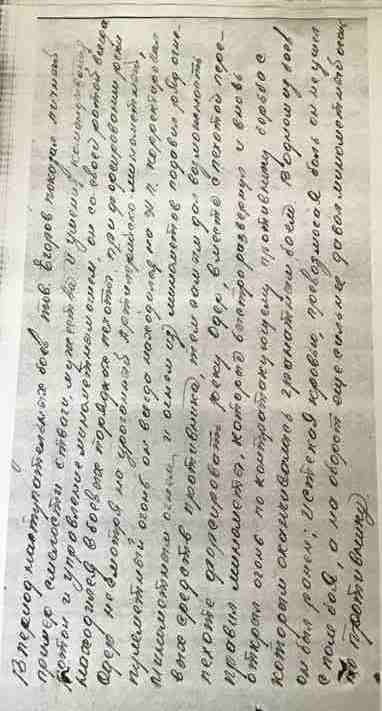 В период наступательных боев тов. Егоров показал личный
пример смелости, отваги, мужества и умения командования
ротой и управление минометным огнем он со своей ротой всегда
находился в боевых порядках пехоты при форсировании реки
Одер несмотря на ураганный артиллерийско-минометный,
пулеметный огонь он всегда находился на Н.П. корректировал
минометным огнем, и огнем из минометов подавил ряд огне-
вых средств противника, тем самым дал возможность
пехоте форсировать реку Одер, вместе с пехотой пере-
правил минометы, которые быстро развернул и вновь
открыл огонь по контратакующему противнику борьба с
которым оканчивалась гранатным боем. В одном из боев
он был ранен, истекая кровью, превозмогая боль он не ушел
с поля боя, а на оборот еще сильнее давал минометный огонь
по противнику